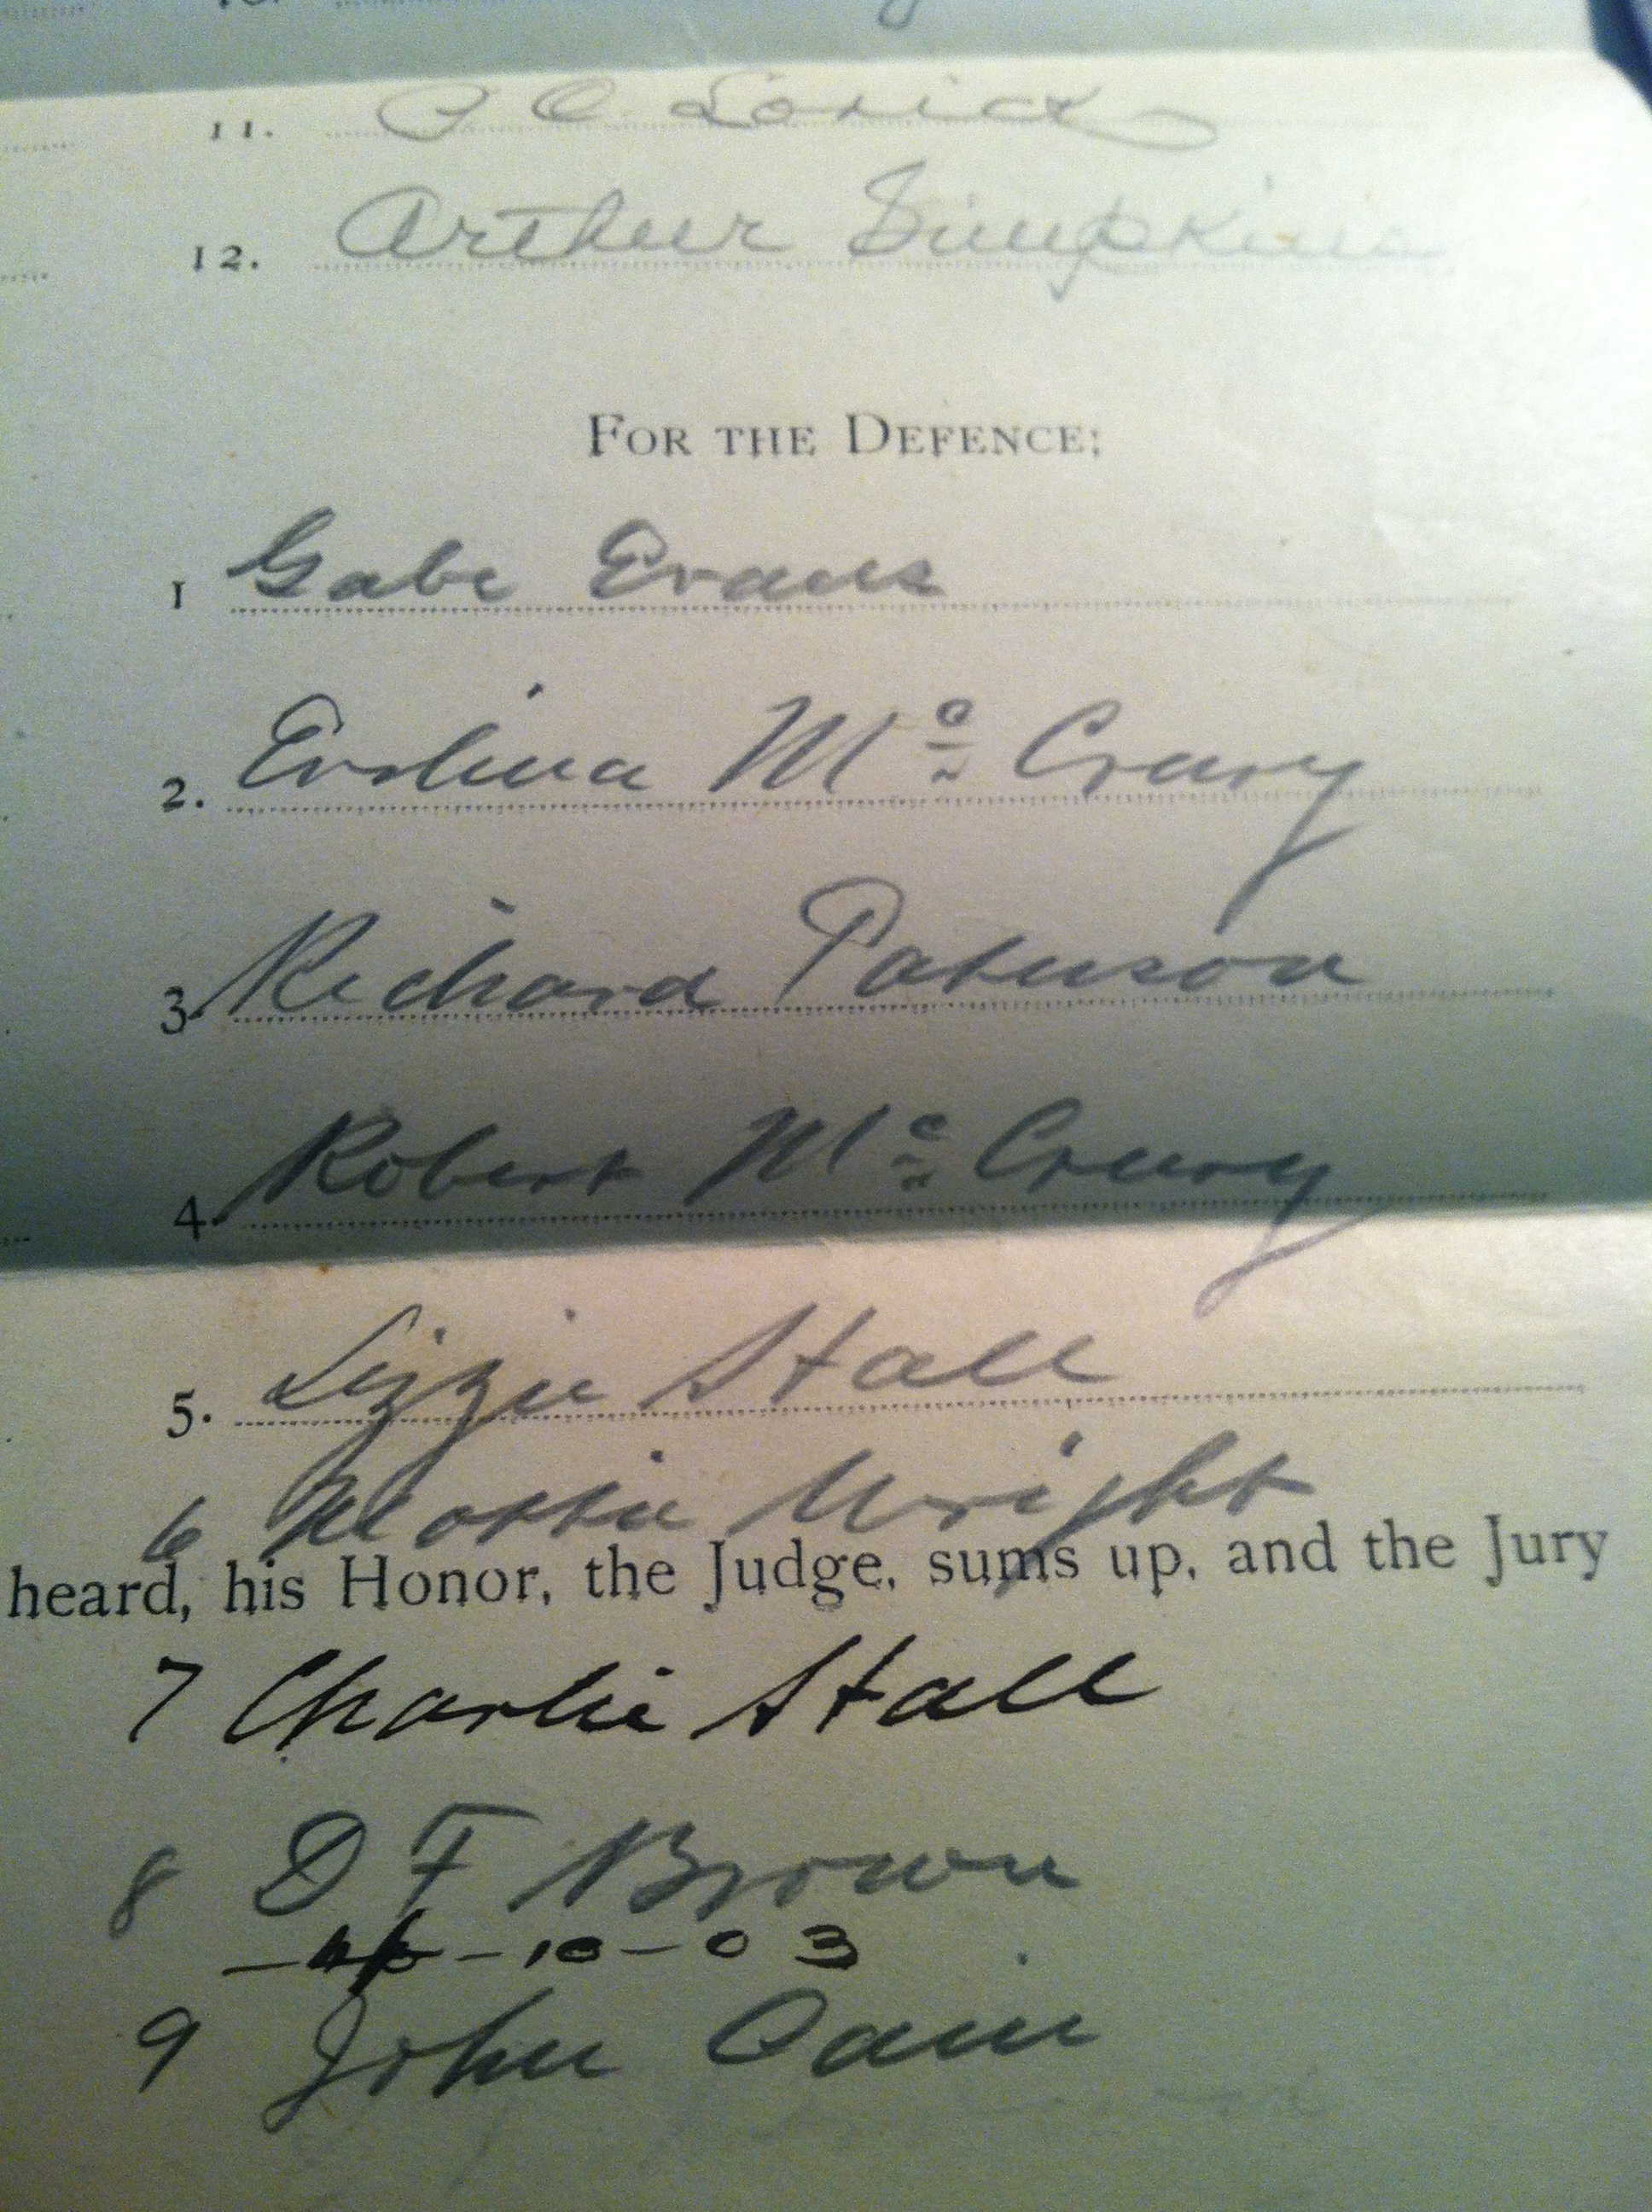 11. P C Lorick
12. Arthur Simpkins
FOR THE DEFENCE;
1 Gabe Evans
2. Evelina Mc Crary
3. Richard Paterson
4. Robert Mc Crary
5. Lizzie Stall
6 Mattie Wright
heard, his Honor, the Judge, sums up, and the Jury
7 Charlie Stall
8 D F Brown
-10-03
9 John Cain